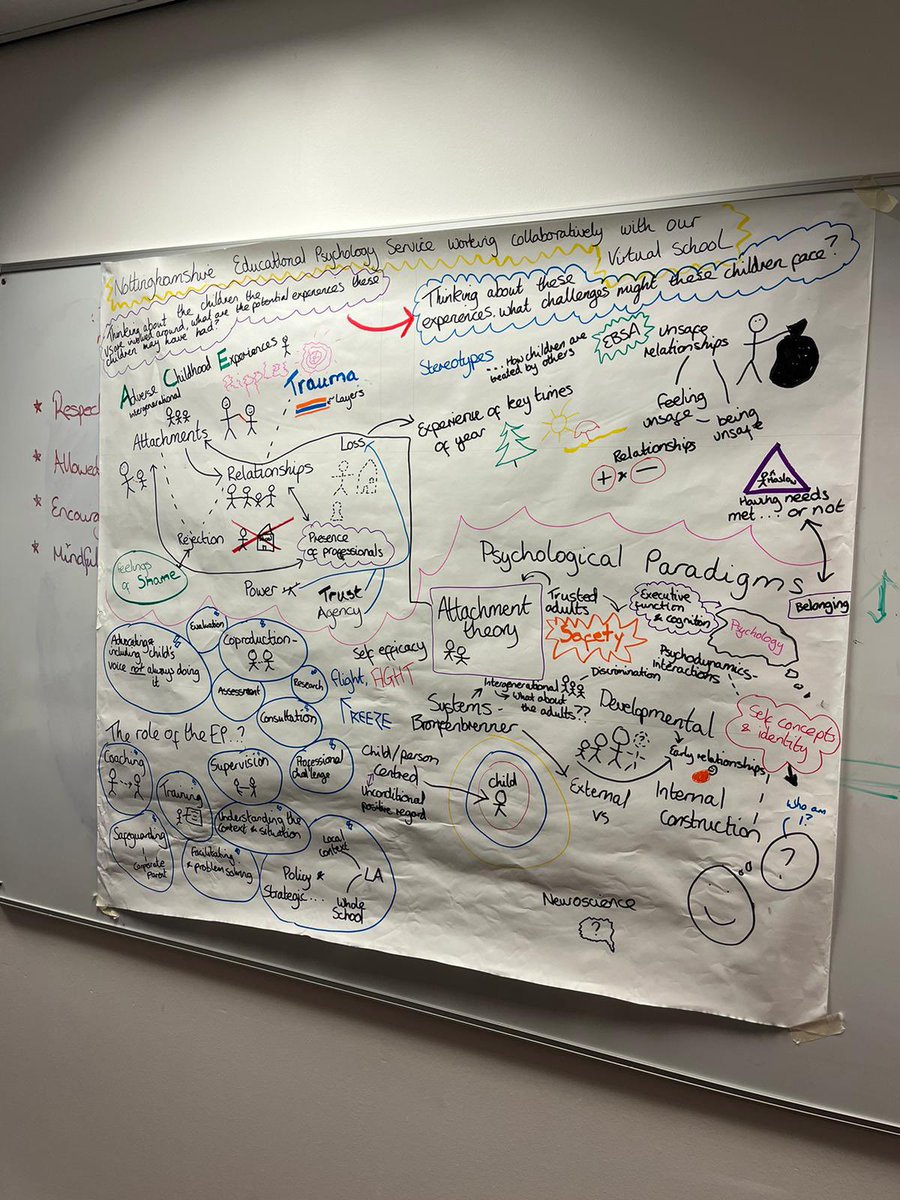 Nottinghamshire Educational Psychology Service working collaboratively with our
Virtual School
Thinking about the children the
VS are involved around, what are the potential experiences these
children may have had?
Thinking about these
experiences. what challenges might these children face?
Adverse Childhood Experiences
intergenerational
Ripples
Trauma
Layers
Attachments
Relationships
Loss
Rejection
Presence
of professionals
Feelings
of Shame
Power
Trust
Agency
Stereotypes
...How children are
treated by others
EBSA
Unsafe
relationships
Experience of key times
of year
Feeling
unsafe - being
unsafe
Relationships
+ * -
Maslow
Having needs
met... or not
Belonging
Psychological Paradigms
Attachment
theory
Trusted
adults
Safety
Executive
function
& cognition
Psychology
Psychodynamics -
interactions
Discrimination
Intergenerational
- what about
the adults??
Systems -
Bronfenbrenner
Developmental
Early relationships
Self concepts
& identity
Who am
I?
?
External
vs
Internal
Construction
Child/person
Centred
Unconditional
positive regard
Child
Neuroscience
?
Self efficacy
flight, FIGHT
FREEZE
Advocating &
including child's
voice not always doing
it
Evaluation
Coproduction -
Assessment
Research
Consultation
The role of the EP..?
Coaching
Training
Supervision
Professional
challenge
Understanding the
context & situation
Safeguarding
Corporate
Parent
Facilitating
& problem solving
Policy &
Strategic...
Local
Context
LA
Whole
School
Respec
Allowed
Encourag
Mindful